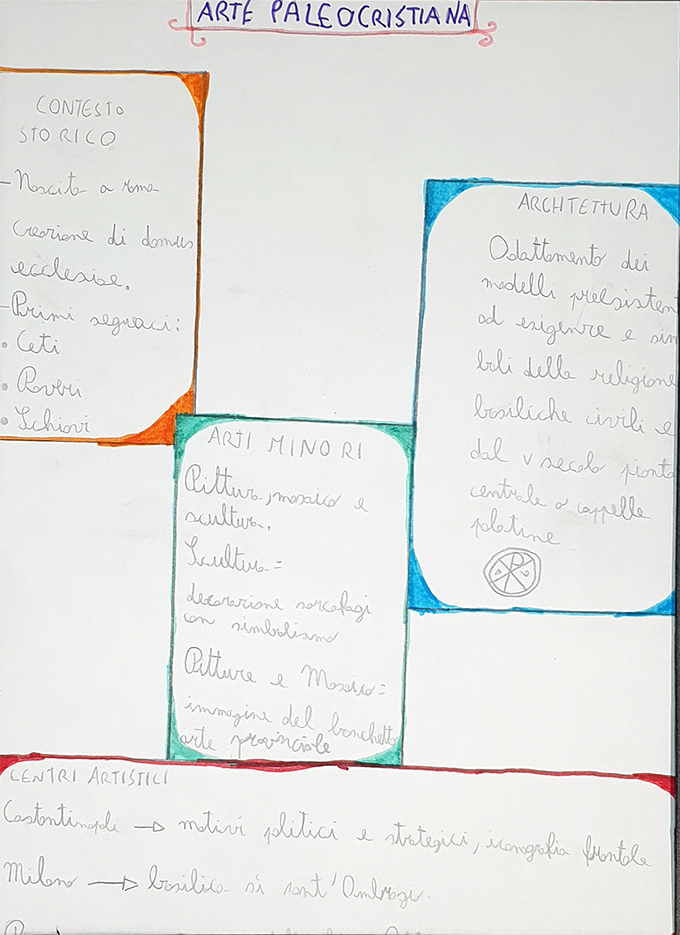 ARTE PALEOCRISTIANA
CONTESTO
STORICO
- Nascita a roma
Creazione di domus
ecclesiae.
- Primi seguaci:
• Ceti
• Poveri
• Schiavi
ARCHITETTURA
Adattamento dei
modelli preesisten
ad esigenze e sim
boli della religione
basiliche civili e
dal V secolo pianta
centrale o cappelle
palatine
ARTI MINORI
Pittura, mosaico e
scultura.
Scultura =
decorazione sarcofagi
con simbolismo
Pitture e Mosaico =
immagine del banchetto
arte provinciale
CENTRI ARTISTICI
Costantinopoli → motivi politici e strategici, iconografia frontale
Milano → basilica si sant'Ambrogi.